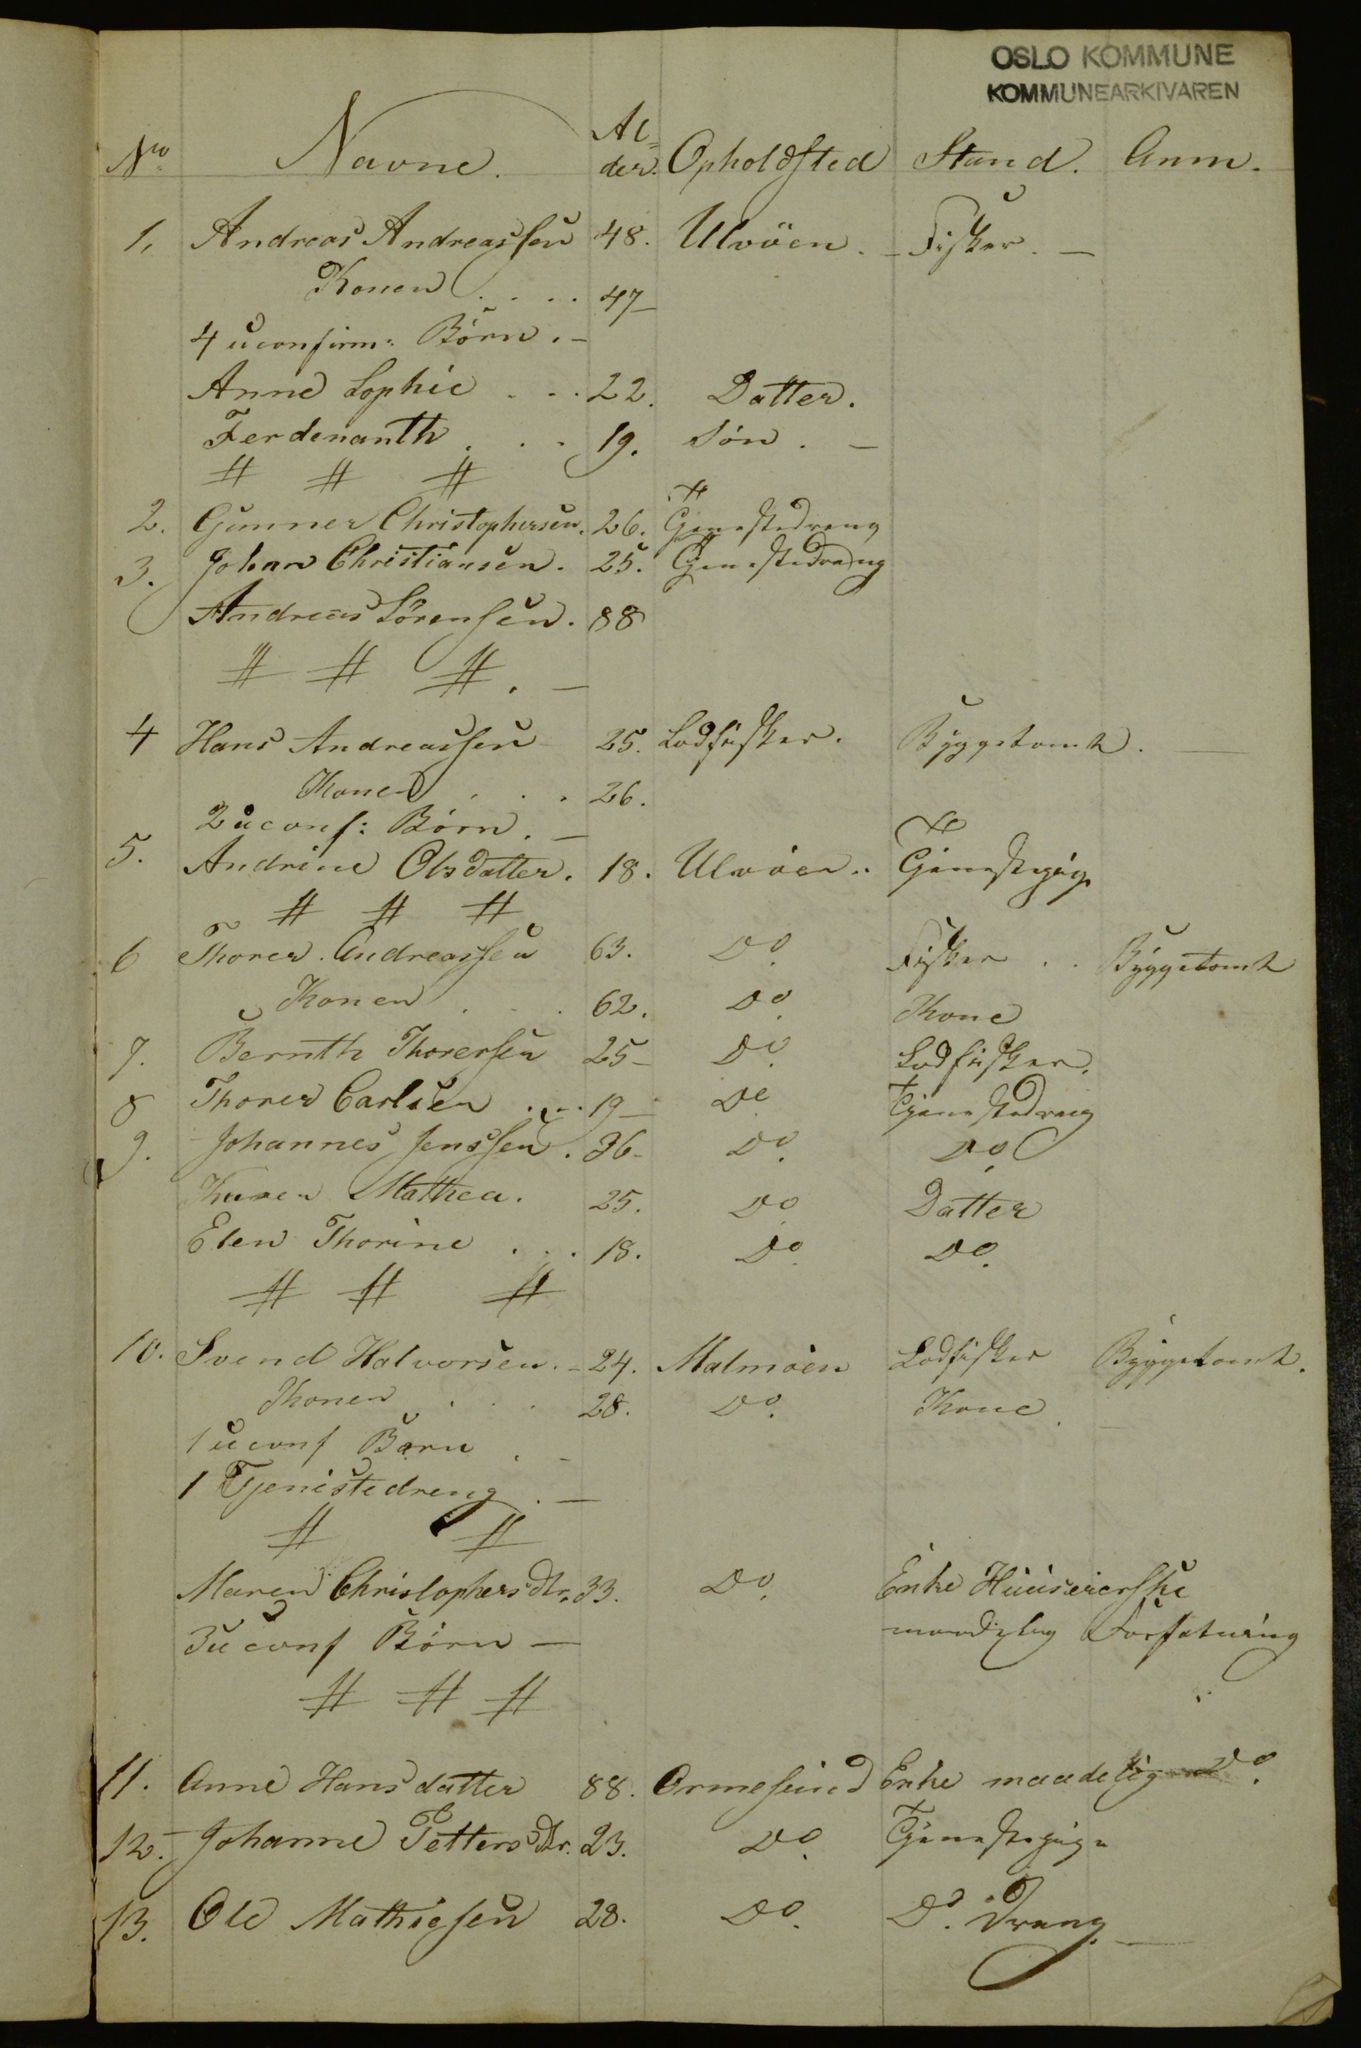 OSLO KOMMUNE
KOMMUNEARKIVAREN
No. Navne. Al-der. Opholdssted Stand. Anm.
1, Andreas Andreassen 48. Ulvöen. - Fisker. -
Konen .... 47-
4 uconfirm: Börn. -
Anne Sophie ... 22. Datter.
Ferdenanth ... 19. Sön. -
# # #
2. Gunner Christophersen. 26. Tjenestedreng
3. Johan Christiansen. 25. Tjenestedreng
Andreas Sörensen. 88
# # #. -
4 Hans Andreassen 25. Lodsfisker. Byggetomt. -
Konen ... 26.
2 uconf: Börn. -
5. Andrine Olsdatter. 18. Ulvöen. Tjenestepige
# # #
6 Thorer Andreassen 63. Do. Fisker .. Byggetomt
Konen ... 62. Do. Kone
7. Bernth Thorersen 25- Do. Lodsfisker.
8 Thorer Carlsen ... 19- Do Tjenestedreng
9. Johannes Jenssen. 36- Do. Do.
Karen Mathea. 25. Do Datter
Elen Thorine ... 18. Do Do.
# # #
10. Svend Halvorsen. - 24. Malmöen Lodsfisker Byggetomt.
Konen ... 28. Do. Kone. -
1 uconf Barn. -
1 Tjenistedreng. -
# #
Maren Christophersdtr. 33. Do. Enke Huuseierske
3 uconf Börn - maadelig Forfatning
# # #
11. Anne Hansdatter 88. Ormesund Enke maadelig Do.
12. Johanne Pettersdtr. 23. Do. Tjenestepige
13. Ole Mathiesen 28. Do. Do. Dreng. -